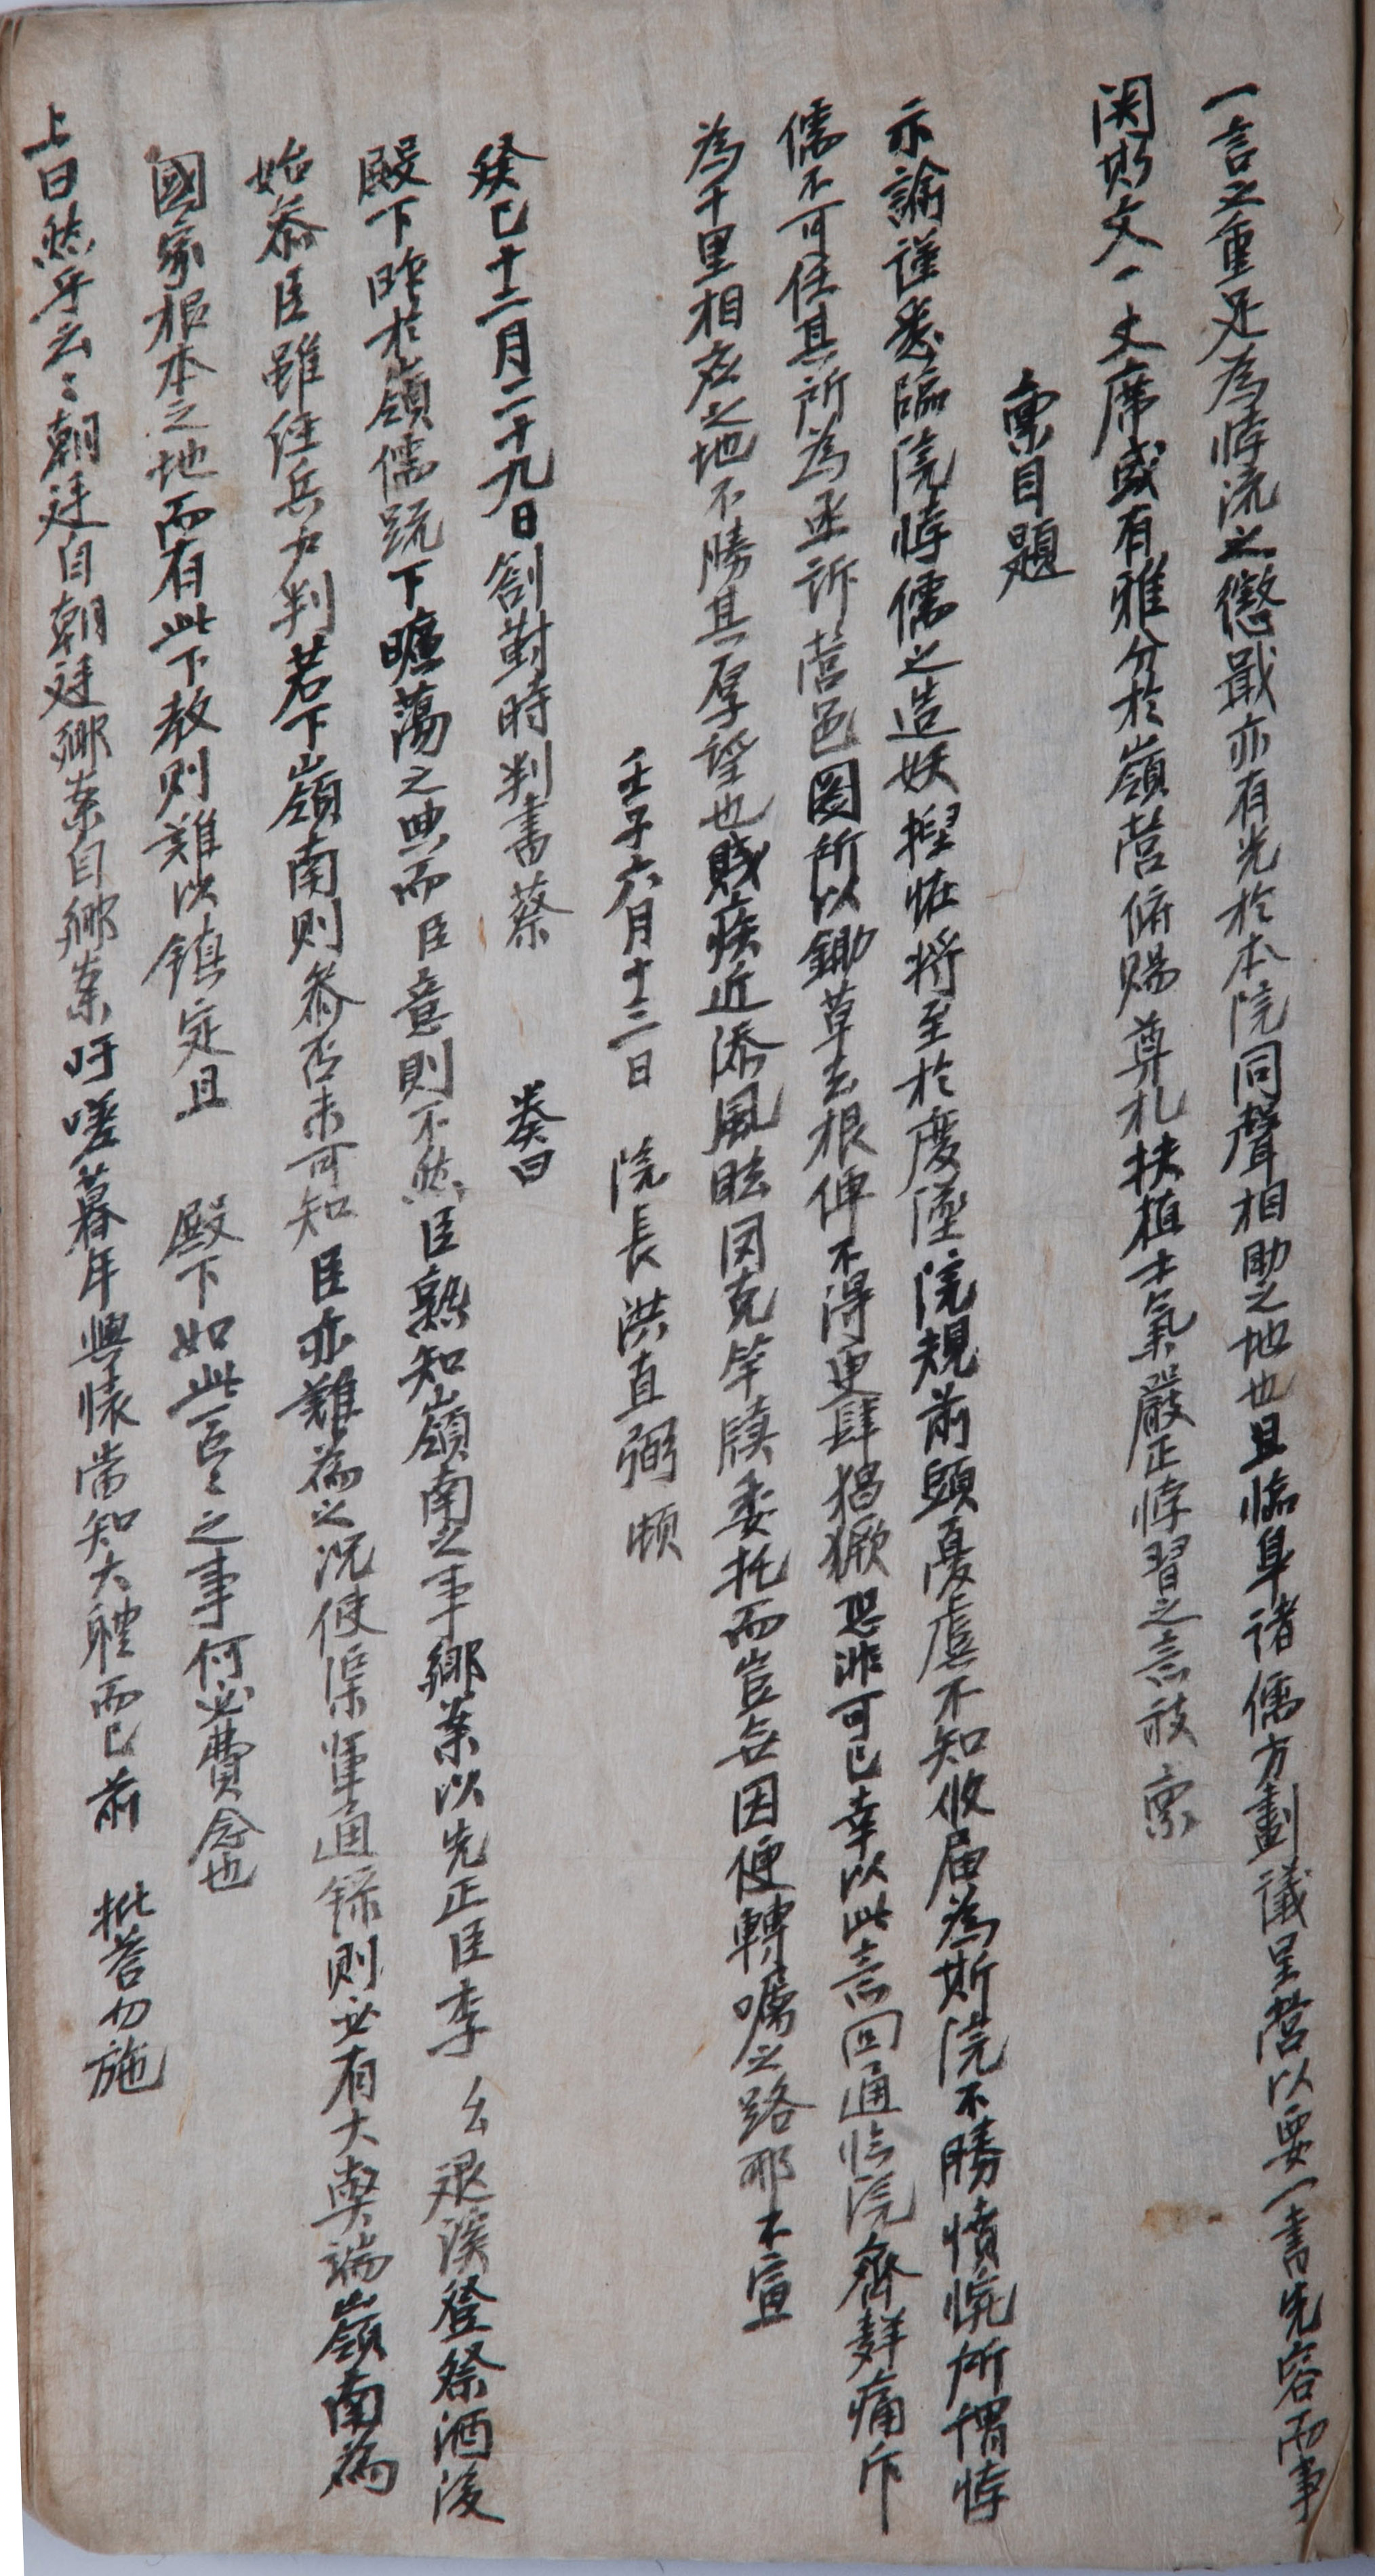 一言之重足爲悖流之懲戢亦有光於本院同聲相助之地也且臨阜諸儒方劃議呈營以要一書先容而事
関斯文一丈席或有雅分於嶺營俯賜尊札扶植士氣嚴正悖習之意敢稟
稟目題
示諭謹悉臨院悖儒之造妖揑恠將至於廢墜院規前頭憂虞不知攸届爲斯院不勝憤惋所謂悖
儒不可任其所爲亟訴營邑圖所以鋤草去根俾不得更肆猖獗恐非可已幸以此意回通臨院齊辭痛斥
爲千里相応之地不勝其厚望也賤疾近添風眩罔克竿牘委托而豈無因便轉囑之路耶不宣
壬子六月十三日 院長洪直弼 頓
癸巳十二月二十九日劄對時判書蔡 奏曰
殿下昨於嶺儒疏下曠蕩之典而臣意則不然臣熟知嶺南之事鄉案以先正臣李 厶退溪登祭酒後
始叅臣雖任兵戶判若下嶺南則叅否未可知臣亦難爲之況使渠輩通錄則必有大輿端嶺南爲
國家根本之地而有此下教則難以鎮定且 殿下如此區〻之事何必費念也
上曰然乎云〻朝廷自朝廷鄉案自鄉案吁嗟暮年興懷當知大軆而已前 批荅勿施